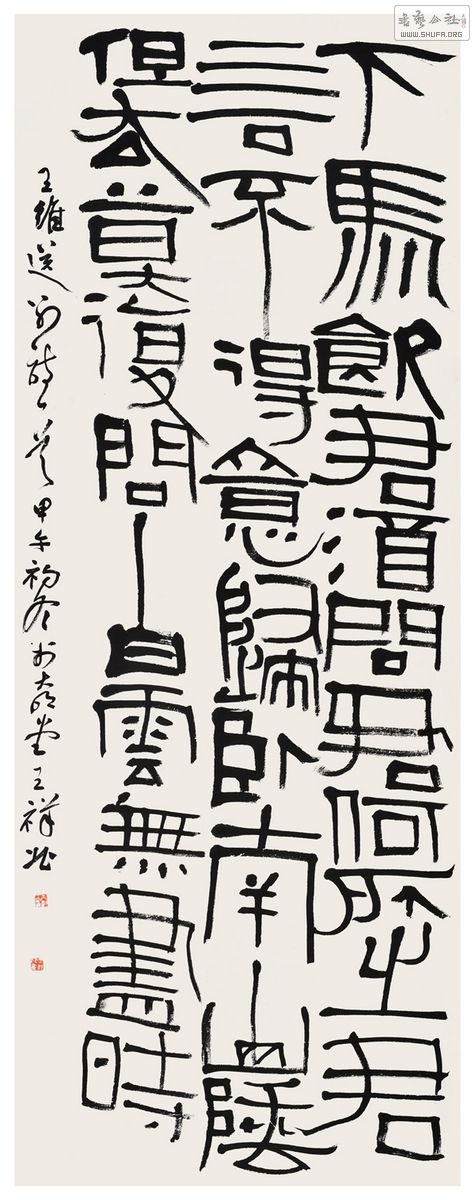 书艺公社
WWW.SHUFA.ORG
下馬飲君酒問君何所之君
言不得意歸臥南山陲
但去莫復問白雲無盡時
王維送別詩一首甲午初冬於堂王祥